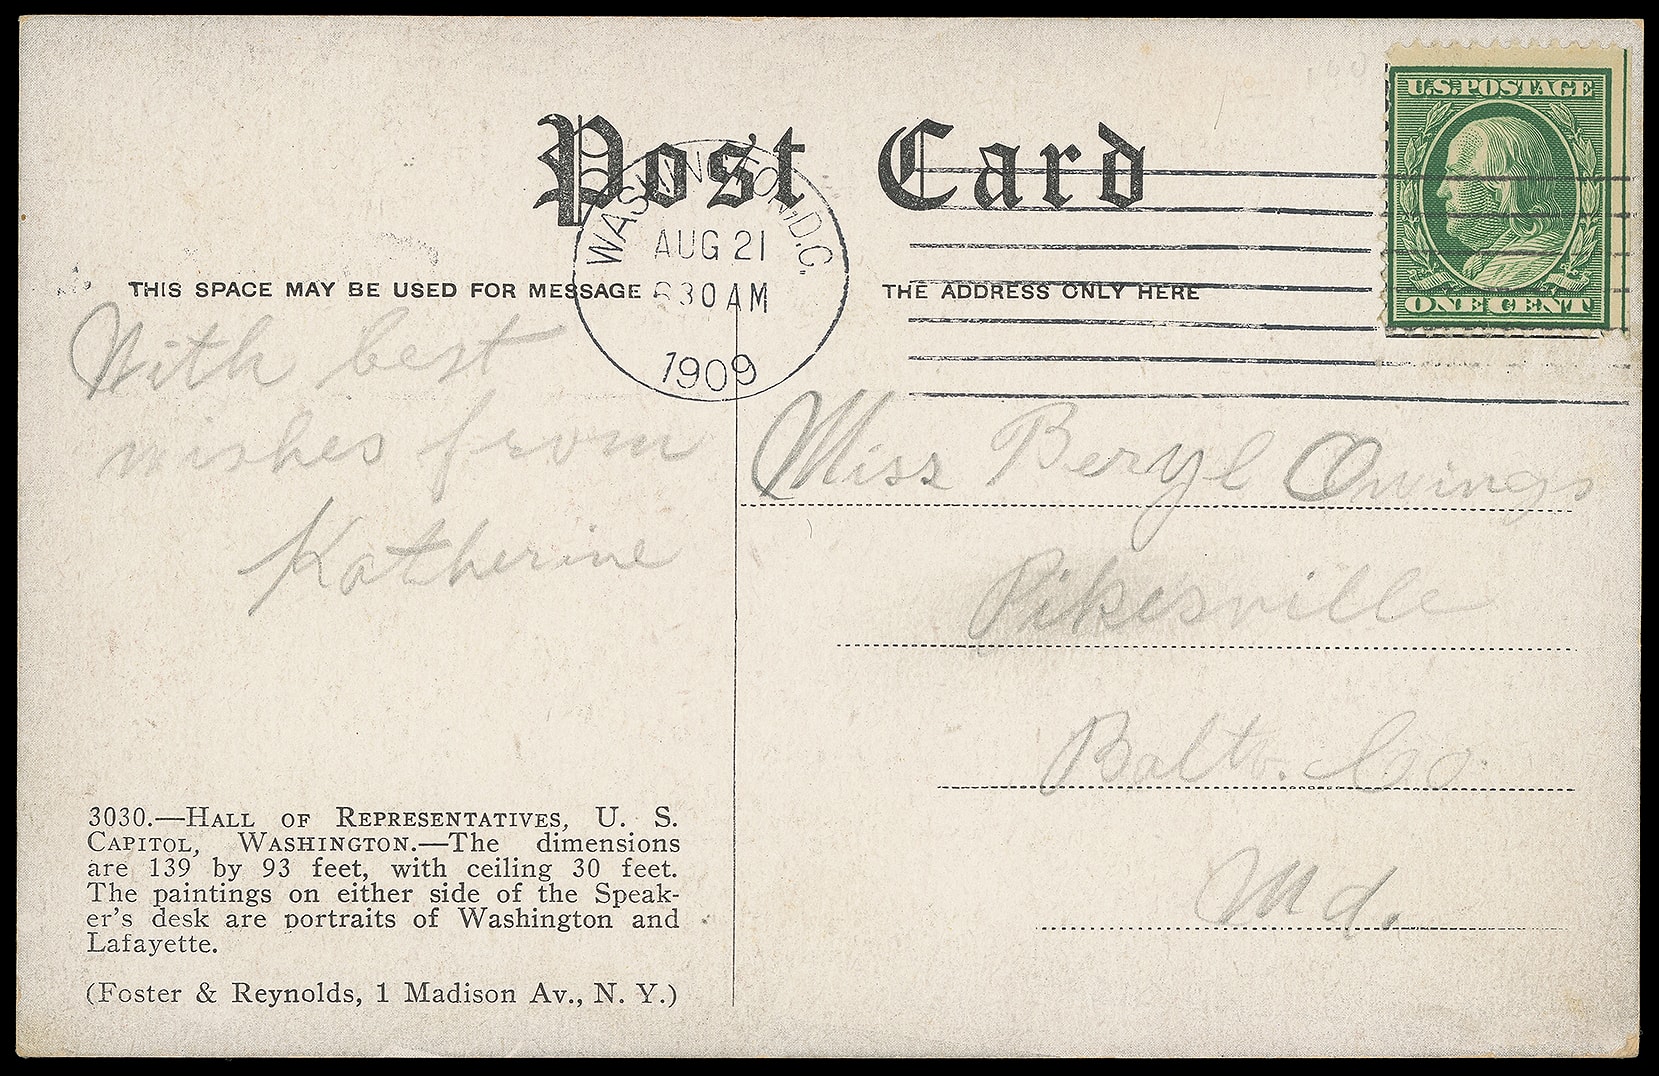 Post Card
WASHINGTON, D.C.
AUG 21
630 AM
1909
U.S. POSTAGE
ONE CENT
THIS SPACE MAY BE USED FOR MESSAGE
THE ADDRESS ONLY HERE
With best
wishes from
Katherine
Miss Beryl Owings
Pikesville
Balto. Co.
Md.
3030.—HALL OF REPRESENTATIVES, U. S.
CAPITOL, WASHINGTON.—The dimensions
are 139 by 93 feet, with ceiling 30 feet.
The paintings on either side of the Speak-
er's desk are portraits of Washington and
Lafayette.
(Foster & Reynolds, 1 Madison Av., N. Y.)